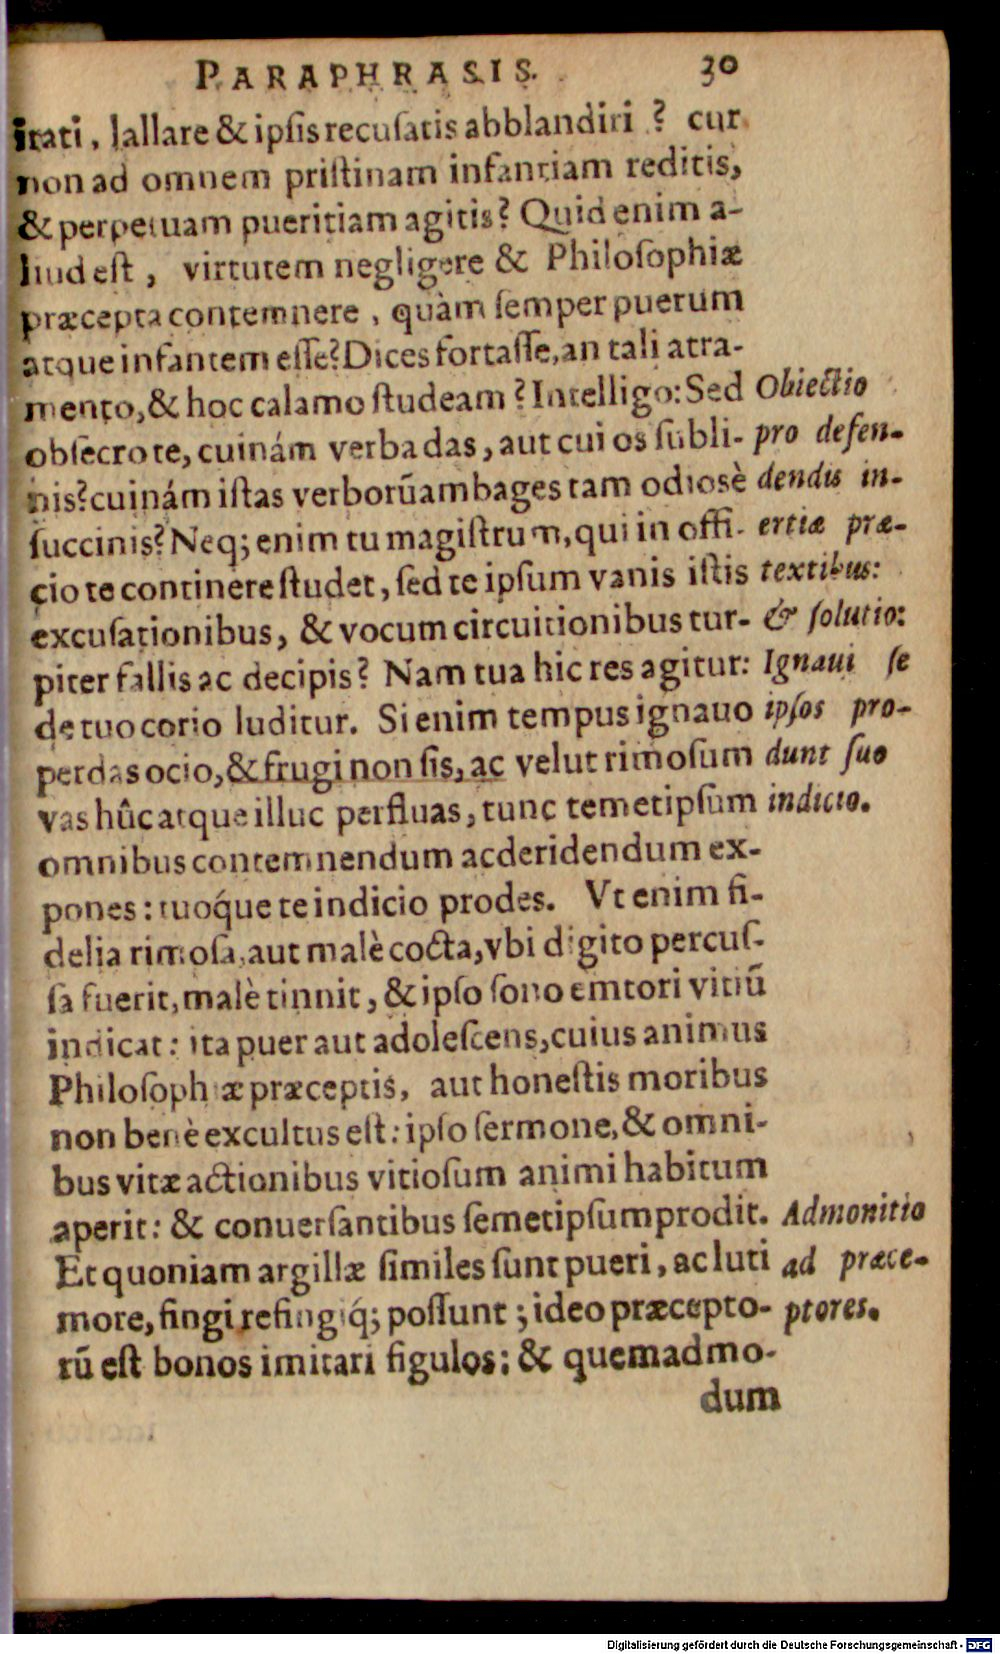 PARAPHRASIS. 30
irati, lallare & ipſis recuſatis abblandiri ? cur
non ad omnem priſtinam infantiam reditis,
& perpetuam pueritiam agitis? Quid enim a-
liud eſt, virtutem negligere & Philoſophiæ
præcepta contemnere, quàm ſemper puerum
atque infantem eſſe? Dices fortaſſe, an tali atra-
mento, & hoc calamo ſtudeam? Intelligo: Sed
obſecro te, cuinám verba das, aut cui os ſubli-
nis? cuinám iſtas verborũ ambages tam odiosè
ſuccinis? Neq; enim tu magiſtrum, qui in offi-
cio te continere ſtudet, ſed te ipſum vanis iſtis
excuſationibus, & vocum circuitionibus tur-
piter fallis ac decipis? Nam tua hic res agitur:
de tuo corio luditur. Si enim tempus ignauo
perdas ocio, & frugi non ſis, ac velut rimoſum
vas hûc atque illuc perfluas, tunc temetipſum
omnibus contemnendum ac deridendum ex-
pones: tuóque te indicio prodes. Vt enim fi-
delia rimoſa, aut malè cocta, vbi digito percuſ-
ſa fuerit, malè tinnit, & ipſo ſono emtori vitiũ
indicat: ita puer aut adoleſcens, cuius animus
Philoſophiæ præceptis, aut honeſtis moribus
non benè excultus eſt: ipſo ſermone, & omni-
bus vitæ actionibus vitioſum animi habitum
aperit: & conuerſantibus ſemetipſum prodit.
Et quoniam argillæ ſimiles ſunt pueri, ac luti
more, fingi refingiq́; poſſunt; ideo præcepto-
rũ eſt bonos imitari figulos: & quemadmo-
dum
Obiectio
pro defen-
dendis in-
ertiæ præ-
textibus:
& ſolutio:
Ignaui ſe
ipſos pro-
dunt ſuo
indicio.
Admonitio
ad præce-
ptores.
Digitalisierung gefördert durch die Deutsche Forschungsgemeinschaft - DFG